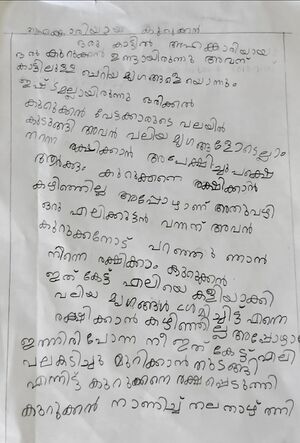 അഹങ്കാരിയായ കുറുക്കൻ
ഒരു കാട്ടിൽ അഹങ്കാരിയായ
ഒരു കുറുക്കൻ ഉണ്ടായിരുന്നു അവന്
കാട്ടിലുള്ള ചെറിയ മൃഗങ്ങളെയൊന്നും
ഇഷ്ടമല്ലായിരുന്നു ഒരിക്കൽ
കുറുക്കൻ വേടക്കാരുടെ വലയിൽ
കുടുങ്ങി അവൻ വലിയ മൃഗങ്ങളോടെല്ലാം
രക്ഷിക്കാൻ അപേക്ഷിച്ചു പക്ഷെ
ആർക്കും കുറുക്കനെ രക്ഷിക്കാൻ
കഴിഞ്ഞില്ല അപ്പോഴാണ് അതുവഴി
ഒരു എലിക്കുട്ടൻ വന്നത് അവൻ
കുറുക്കനോട് പറഞ്ഞു ഞാൻ
നിന്നെ രക്ഷിക്കാം കുറുക്കൻ
ഇത് കേട്ട് എലിയെ കളിയാക്കി
വലിയ മൃഗങ്ങൾ ശ്രമിച്ചിട്ട് എന്നെ
രക്ഷിക്കാൻ കഴിഞ്ഞില്ല അപ്പോഴാ
ഇത്തിരി പോന്ന നീ ഇത് കേട്ട് എലി
വല കടിച്ചു മുറിക്കാൻ തുടങ്ങി
എന്നിട്ട് കുറുക്കനെ രക്ഷപ്പെടുത്തി
കുറുക്കൻ നാണിച്ച് തല താഴ്ത്തി